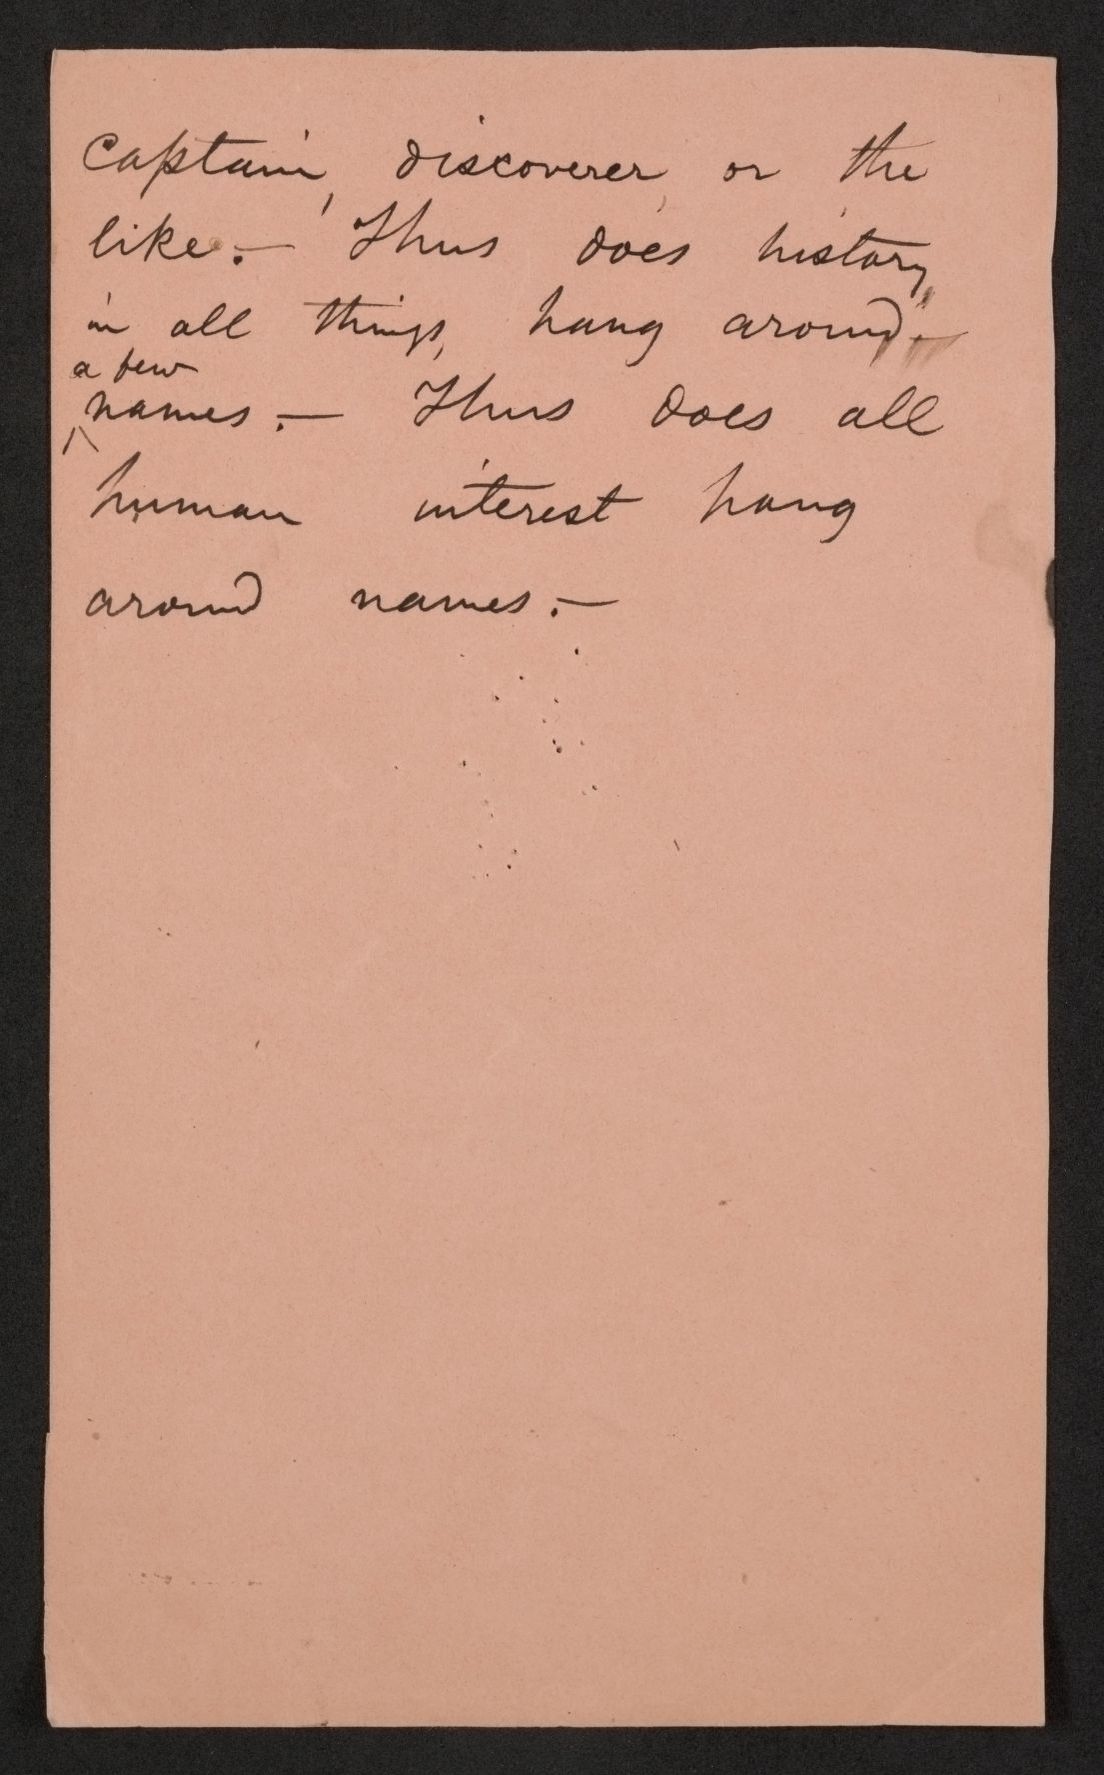 captain, discoverer, or the
like. — Thus does history,
in all things, hang around
a few
names. — Thus does all
human interest hang
around names. —